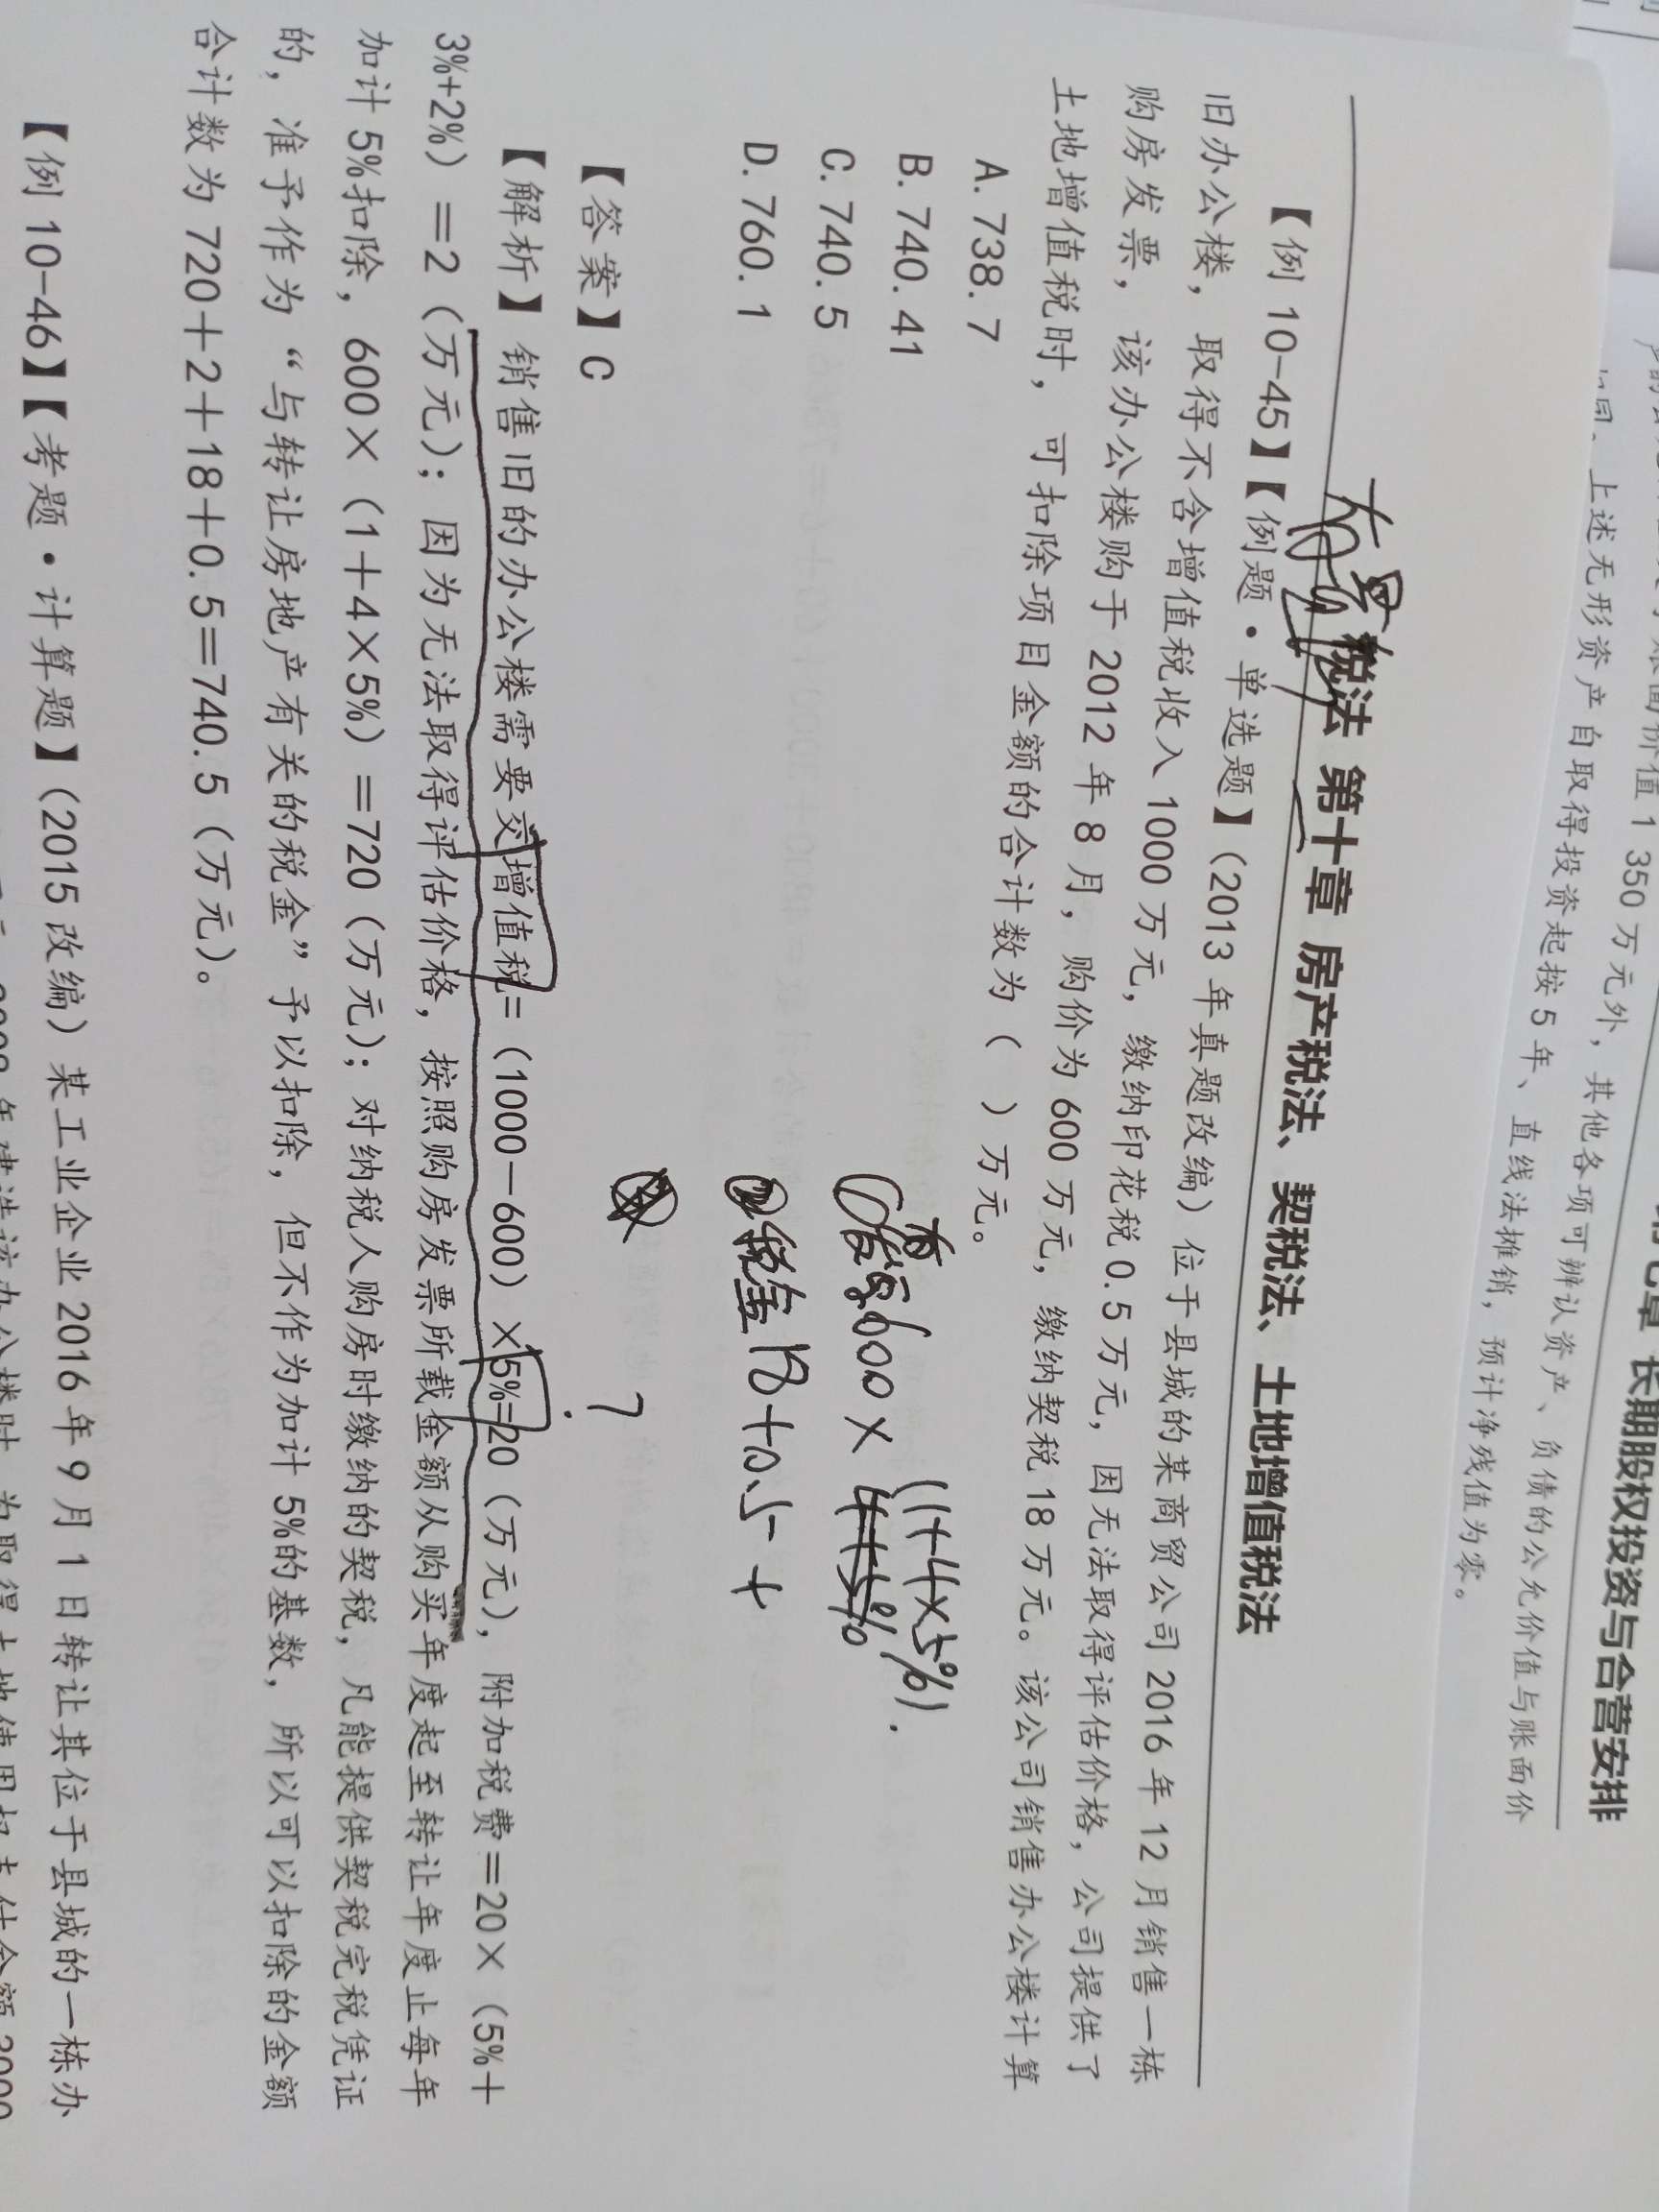 值 1 350 万元外，其他各项可辨认资产、负债的公允价值与账面价
上述无形资产自取得投资起按 5 年、直线法摊销，预计净残值为零。
长期股权投资与合营安排
税法 第十章 房产税法、契税法、土地增值税法
【例 10-45】【例题·单选题】（2013 年真题改编）位于县城的某商贸公司 2016 年 12 月销售一栋
旧办公楼，取得不含增值税收入 1000 万元，缴纳印花税 0.5 万元，因无法取得评估价格，公司提供了
购房发票，该办公楼购于 2012 年 8 月，购价为 600 万元，缴纳契税 18 万元。该公司销售办公楼计算
土地增值税时，可扣除项目金额的合计数为（ ）万元。
A. 738.7
B. 740.41
C. 740.5
D. 760.1
600 × (1+4×5%).
② 税金 18+0.5+
?
【答案】C
【解析】销售旧的办公楼需要交增值税=（1000－600）×5%=20（万元），附加税费＝20×（5%＋
3%+2%）＝2（万元）；因为无法取得评估价格，按照购房发票所载金额从购买年度起至转让年度止每年
加计 5%扣除，600×（1＋4×5%）＝720（万元）；对纳税人购房时缴纳的契税，凡能提供契税完税凭证
的，准予作为“与转让房地产有关的税金”予以扣除，但不作为加计 5%的基数，所以可以扣除的金额
合计数为 720＋2＋18＋0.5＝740.5（万元）。
【例 10-46】【考题·计算题】（2015 改编）某工业企业 2016 年 9 月 1 日转让其位于县城的一栋办